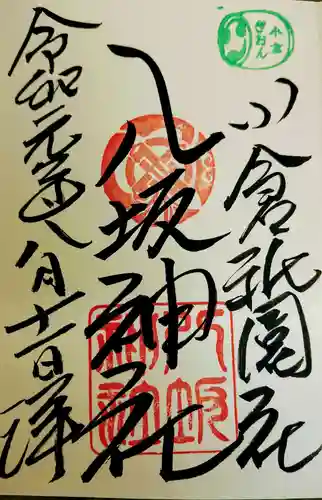 小倉
ぎおん
小倉祇園社
八坂神社
八坂神社
令和元年八月十一日拝